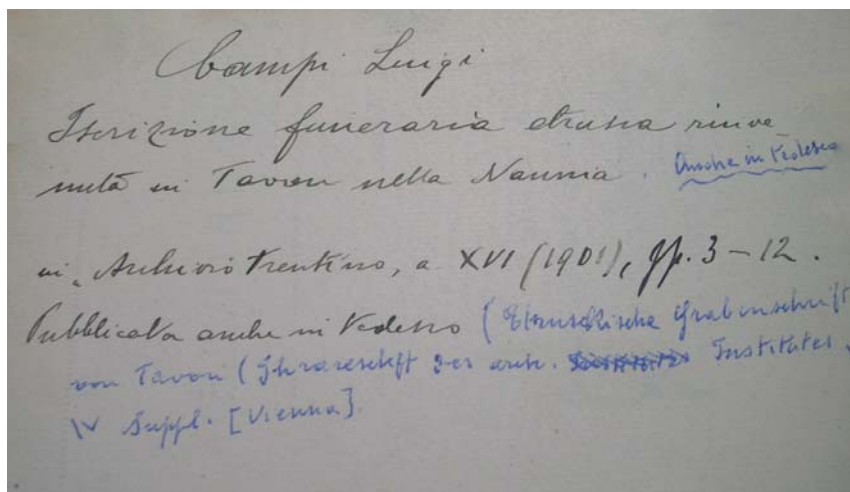 Campi Luigi
Iscrizione funeraria etrusca rinve-
nuta in Tavon nella Naunia. Anche in tedesco
in "Archivio trentino, a XVI (1901), pp. 3-12.
Pubblicata anche in tedesco (Etruskische Grabinschrift
von Tavon ( des arch. Institutes,
IV Suppl. [Vienna].